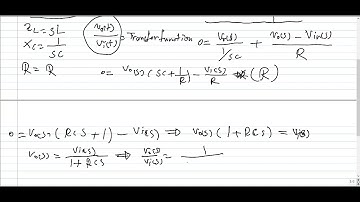 Z_L = SL
X_C = 1/SC
R = R
V_o(t)/V_i(t) = Transfer function
0 = V_o(s)/(1/SC) + (V_o(s) - V_in(s))/R
0 = V_o(s) (SC + 1/R) - V_i(s)/R (R)
0 = V_o(s) (RCS + 1) - V_i(s) ⇒ V_o(s) (1 + RCS) = V_i(s)
V_o(s) = V_i(s)/(1 + RCS) ⇒ V_o(s)/V_i(s) = 1/